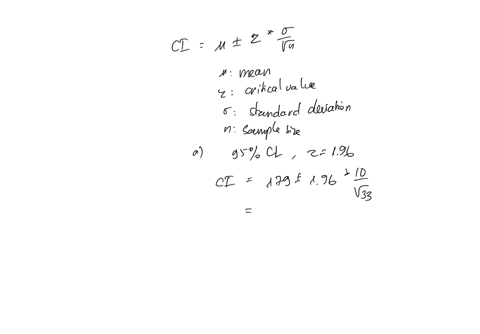 CI = μ ± z * σ/√n
μ: mean
z: critical value
σ: standard deviation
n: sample size
a) 95% CL, z=1.96
CI = 179 ± 1.96 * 10/√33
=